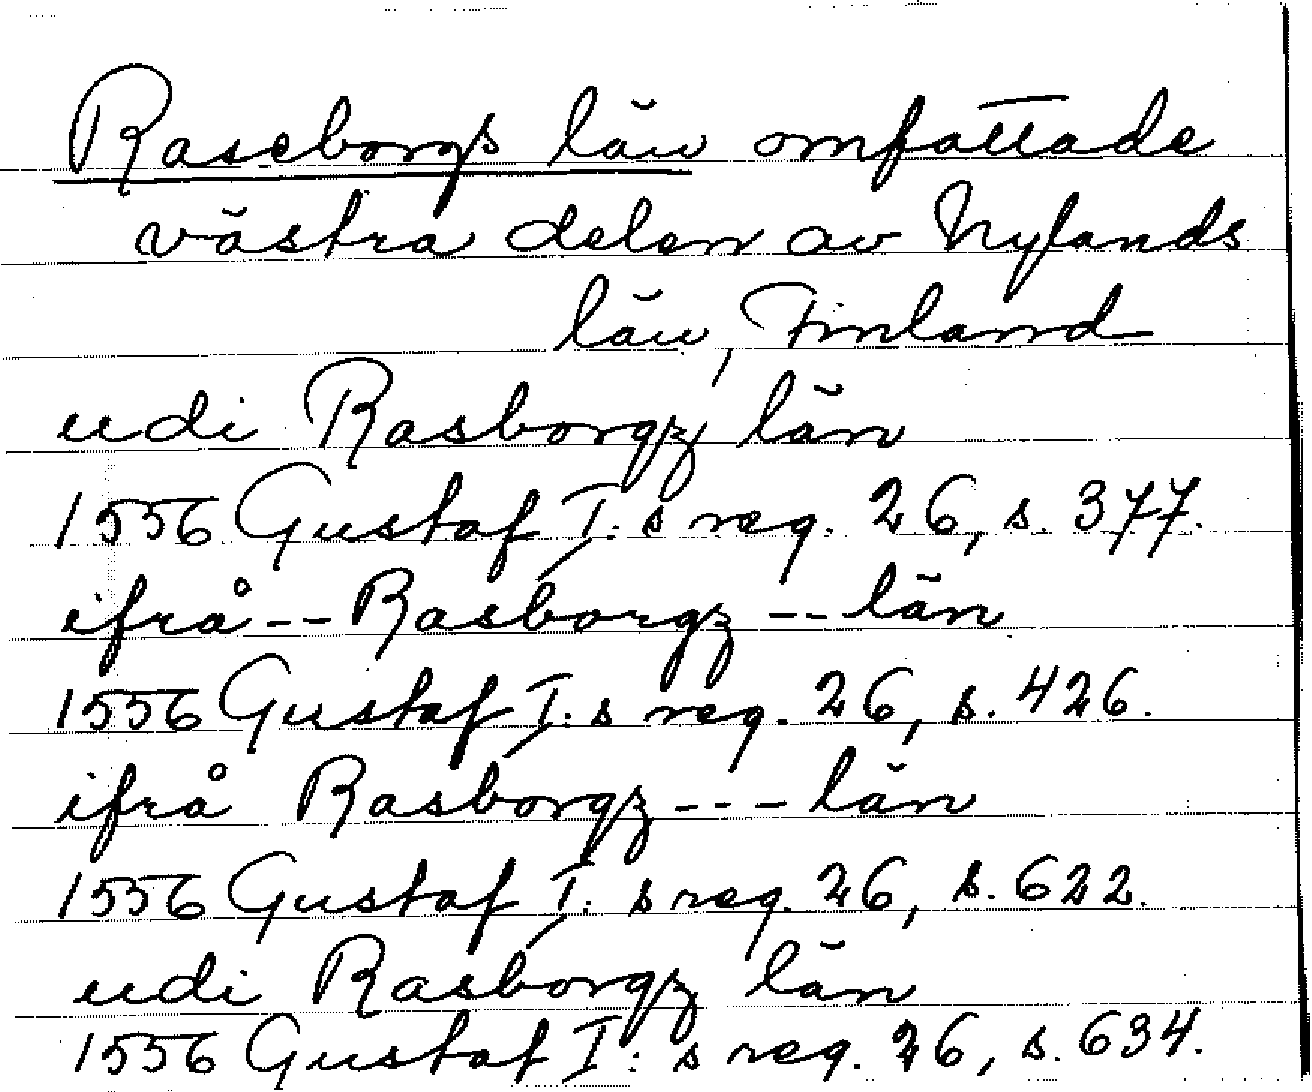 Raseborgs län omfattade
västra delen av Nylands
län, Finland
udi Rasborgz län
1556 Gustaf I:s reg. 26, s. 377.
ifrå -- Rasborgz -- län
1556 Gustaf I:s reg. 26, s. 426.
ifrå Rasborgz --- län
1556 Gustaf I:s reg. 26, s. 622.
udi Rasborgz län
1556 Gustaf I:s reg. 26, s. 634.